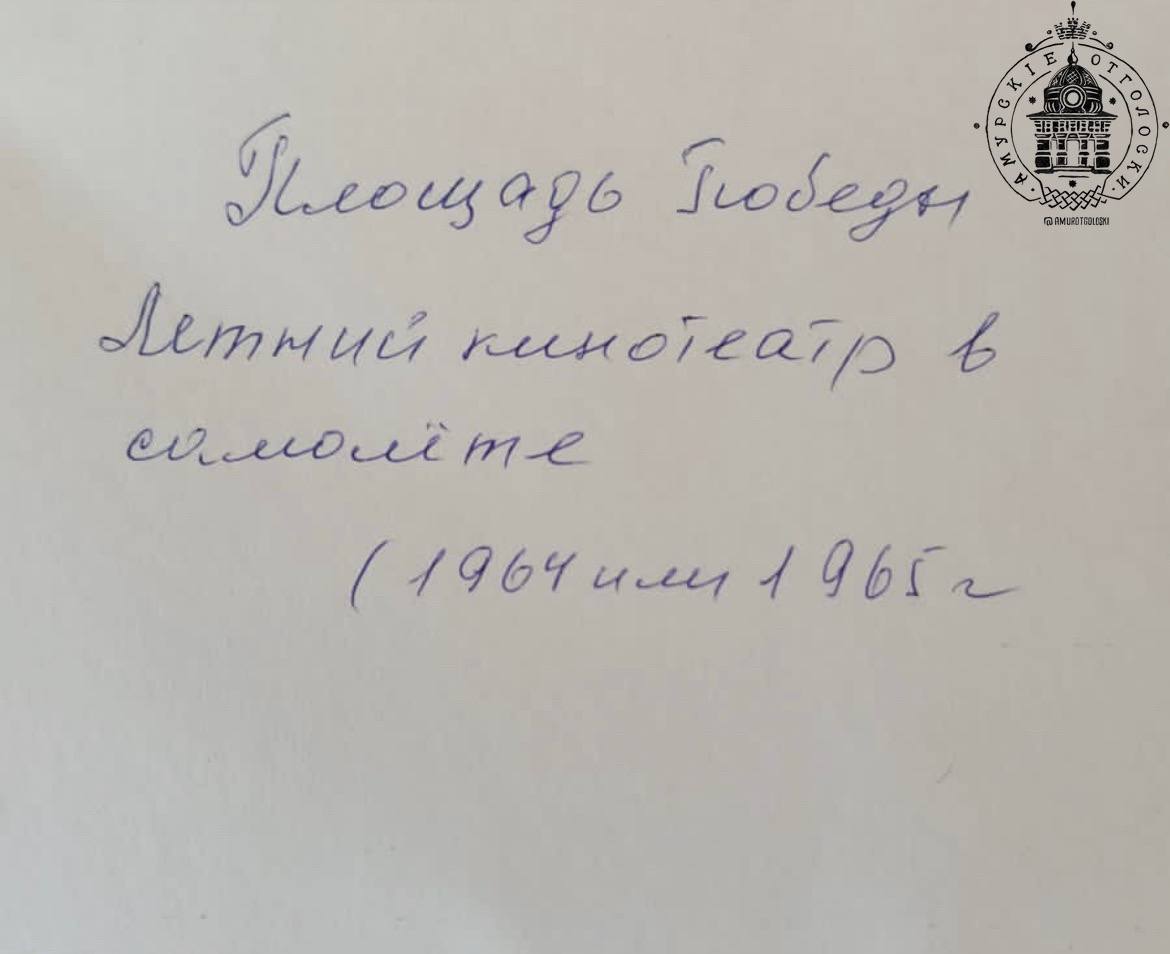 АМУРСКІЕ ОТГОЛОСКИ
@AMUROTGOLOSKI
Площадь Победы
Летний кинотеатр в
самолёте
(1964 или 1965 г